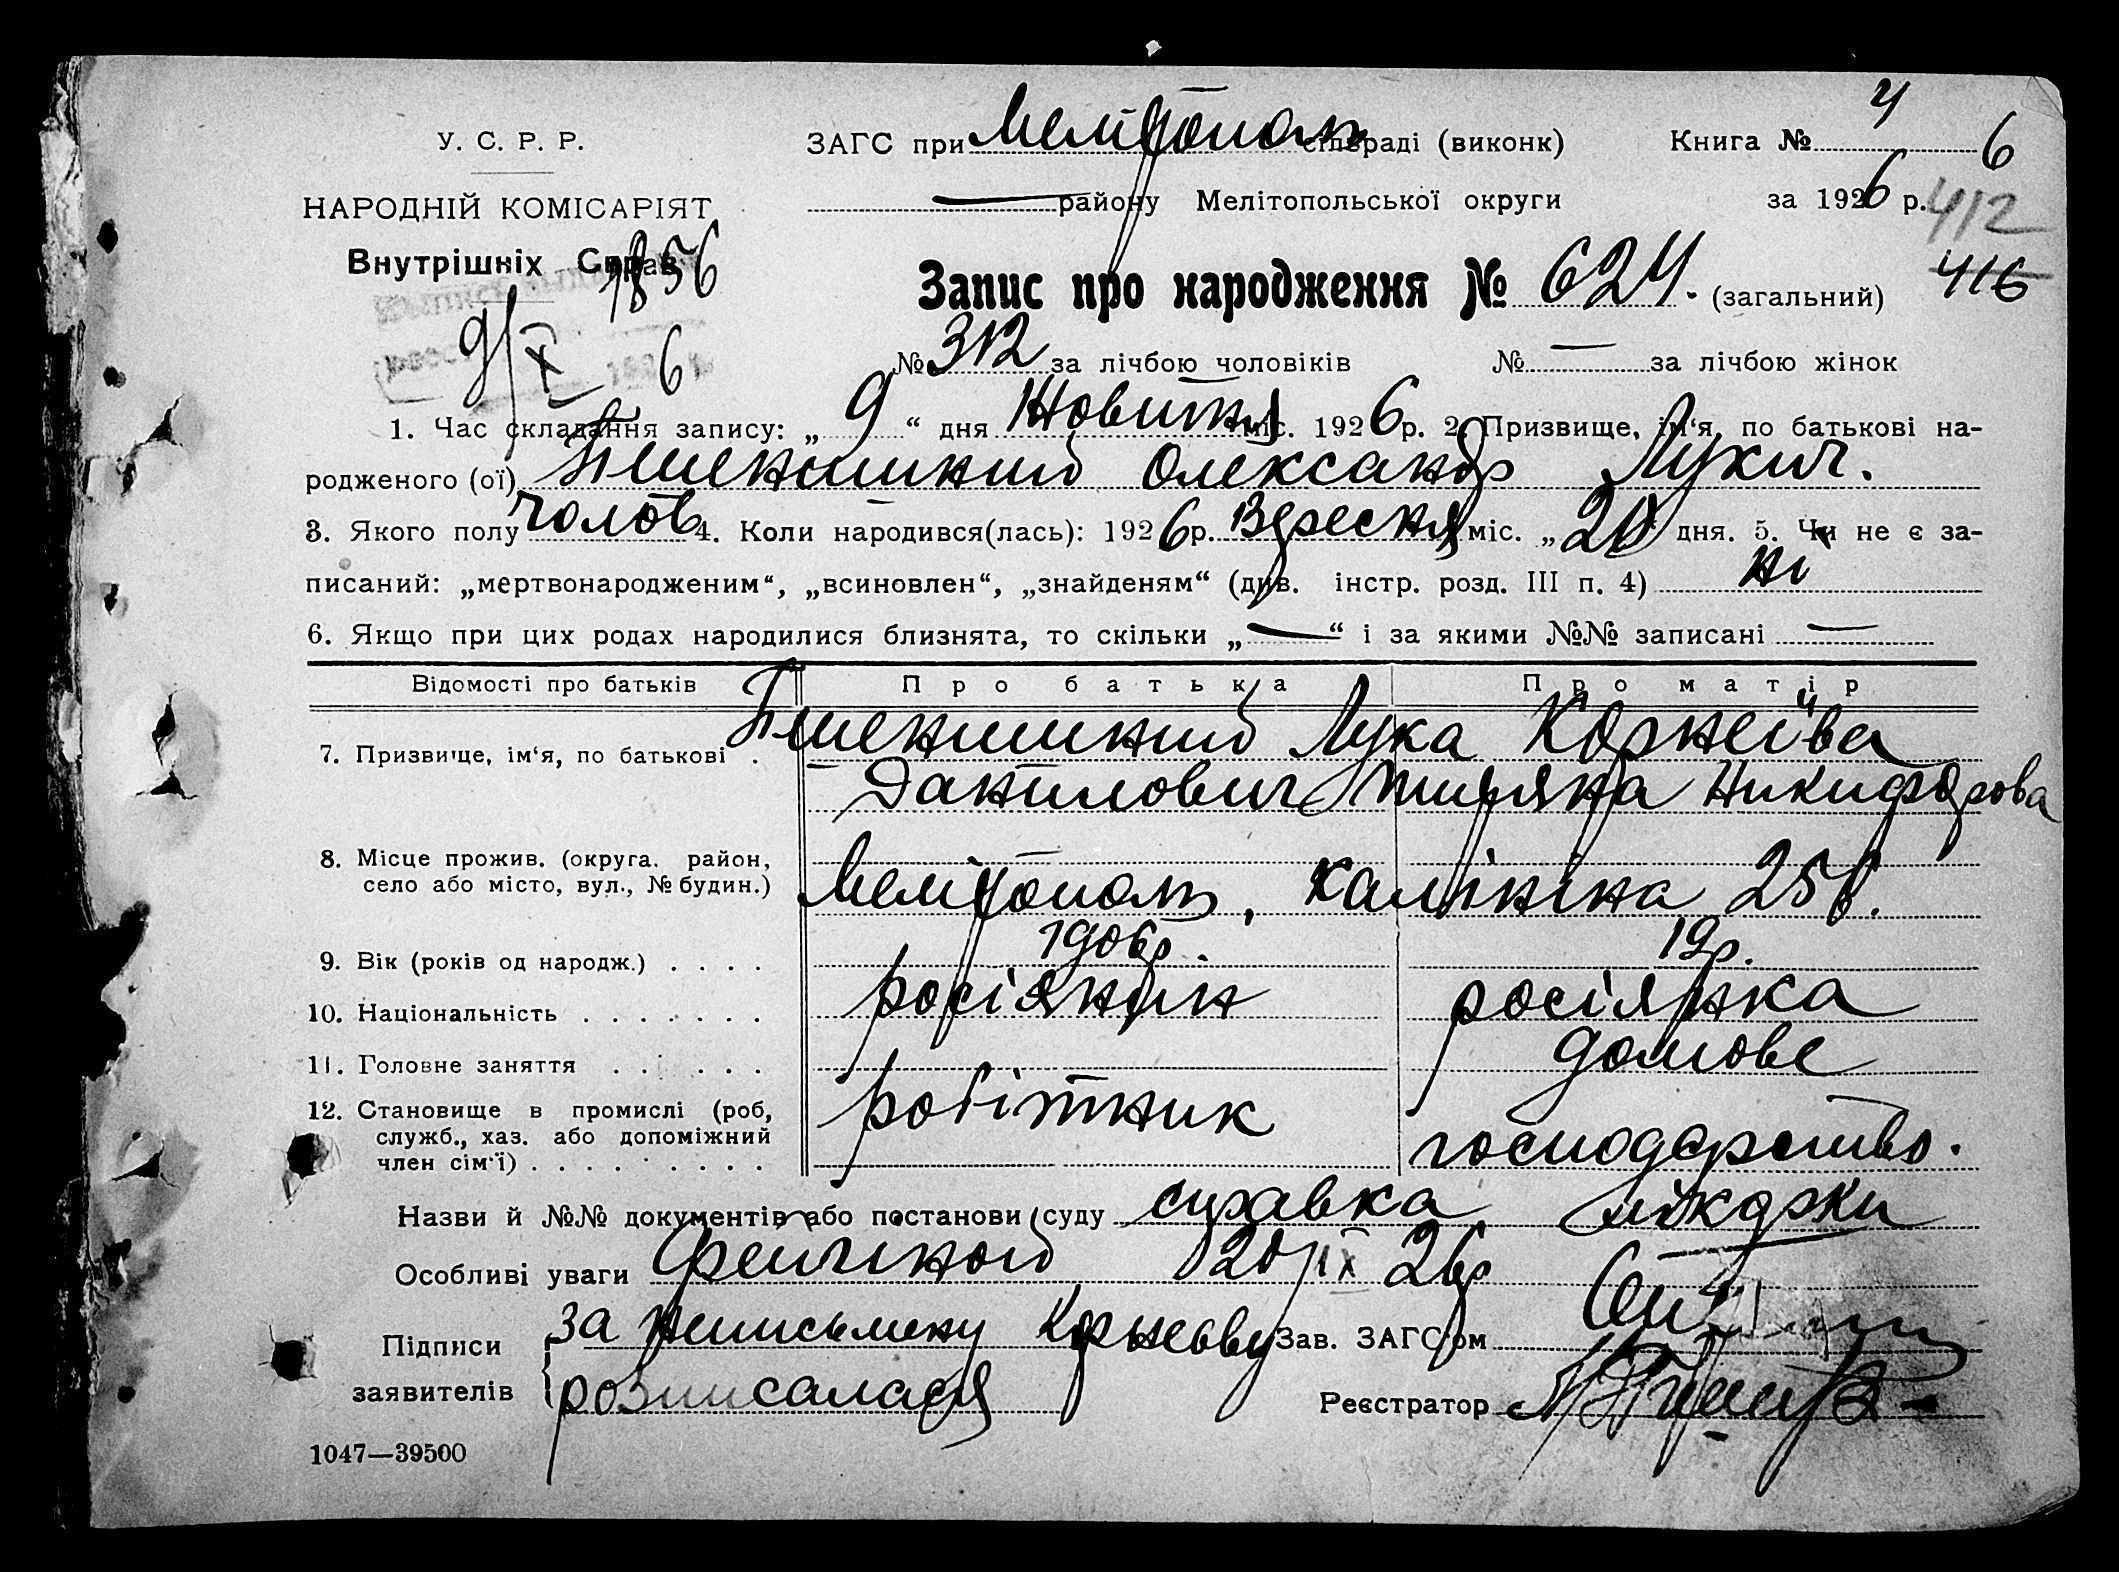 У. С. Р. Р.
НАРОДНІЙ КОМІСАРІЯТ
Внутрішніх Справ
1856
9/X 6
ЗАГС при Мелітополь сільраді (виконк) Книга № 4 6
— району Мелітопольської округи за 1926 р. 412
Запис про народження № 624. (загальний) 416
№ 312 за лічбою чоловіків № — за лічбою жінок
1. Час складання запису: „ 9 “ дня Жовтня міс. 1926 р. 2. Призвище, ім‘я, по батькові на-
родженого (ої) Пшенишний Олександр Лукич.
3. Якого полу Чолов 4. Коли народився(лась): 1926 р. Вересня міс. „ 20 “ дня. 5. Чи не є за-
писаний: „мертвонародженим“, „всиновлен“, „знайденям“ (див. інстр. розд. III п. 4) ні
6. Якщо при цих родах народилися близнята, то скільки „ — “ і за якими №№ записані —
Відомості про батьків Про батька Про матір
7. Призвище, ім‘я, по батькові . Пшенишний Лука Корнеїва
Данилович Никифорова
8. Місце прожив. (округа. район,
село або місто, вул., № будин.) Мелітополь, Калініна 25
9. Вік (років од народж.) . . . . 1906р. 19р.
10. Національність . . . . . . . росіянин росіянка
11. Головне заняття . . . . . . домове
12. Становище в промислі (роб, робітник
служб., хаз. або допоміжний господарство.
член сім‘ї) . . . . . . . . .
Назви й №№ документів або постанови суду справка лікарки
Особливі уваги 20/IX 26р
Підписи за неписьмену Корнеєву Зав. ЗАГС‘ом
заявителів розписалася Реєстратор
1047—39500